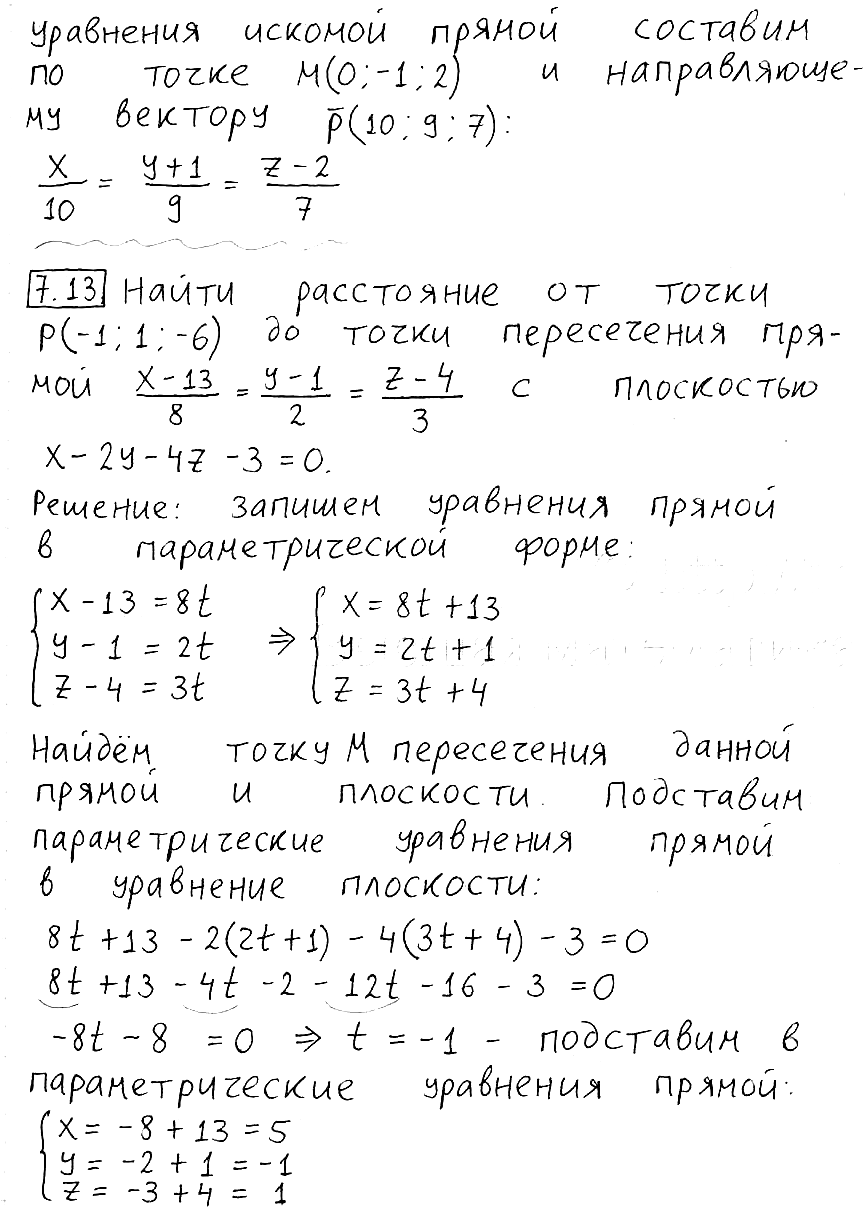 уравнения искомой прямой составим
по точке М(0;-1;2) и направляюще-
му вектору p̄(10;9;7):
x/10 = y+1/9 = z-2/7
7.13 Найти расстояние от точки
P(-1;1;-6) до точки пересечения пря-
мой x-13/8 = y-1/2 = z-4/3 с плоскостью
x-2y-4z-3=0.
Решение: запишем уравнения прямой
в параметрической форме:
{ x-13=8t ⇒ { x=8t+13
y-1=2t y=2t+1
z-4=3t z=3t+4
Найдём точку М пересечения данной
прямой и плоскости. Подставим
параметрические уравнения прямой
в уравнение плоскости:
8t+13-2(2t+1)-4(3t+4)-3=0
8t+13-4t-2-12t-16-3=0
-8t-8=0 ⇒ t=-1 - подставим в
параметрические уравнения прямой:
{ x=-8+13=5
y=-2+1=-1
z=-3+4=1